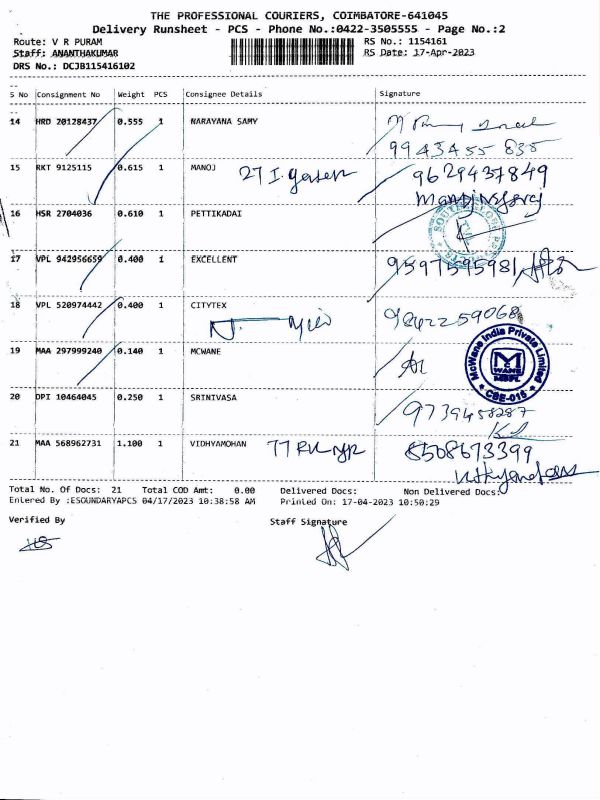 THE PROFESSIONAL COURIERS, COIMBATORE-641045
Delivery Runsheet - PCS - Phone No.:0422-3505555 - Page No.:2
Route: V R PURAM
RS No.: 1154161
Staff: ANANTHAKUMAR
RS Date: 17-Apr-2023
DRS No.: DCJB115416102
S No Consignment No Weight PCS Consignee Details Signature
14 HRD 70128437 0.555 1 NARAYANA SAMY
9943455 835
15 RKT 9125115 0.615 1 MANOJ 9629437849
16 HSR 2704036 0.610 1 PETTIKADAI
17 VPL 942956659 0.400 1 EXCELLENT 9597595981
18 VPL 520974442 0.400 1 CITYTEX 9842259068
19 MAA 297999240 0.140 1 MCWANE
McWane India Private Limited
MCWANE
CBE-015
20 DPI 10464045 0.250 1 SRINIVASA 9739458287
21 MAA 568962731 1.100 1 VIDHYAMOHAN 8508673399
Total No. Of Docs: 21 Total COD Amt: 0.00 Delivered Docs: Non Delivered Docs:
Entered By :ESOUNDARYAPCS 04/17/2023 10:38:58 AM Printed On: 17-04-2023 10:50:29
Verified By
Staff Signature